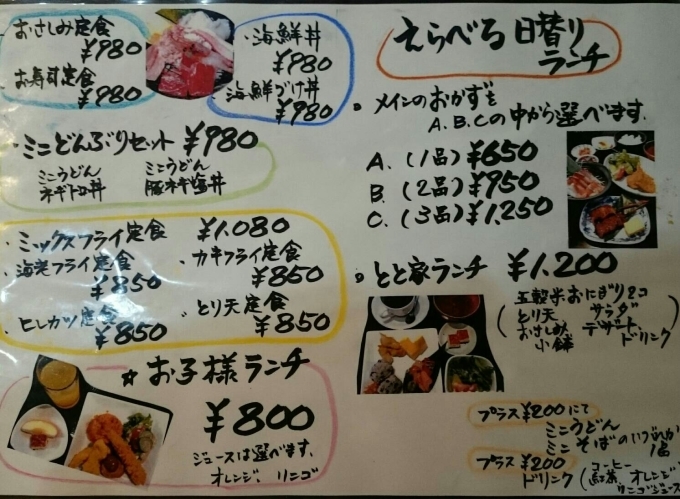 おさしみ定食
¥980
お寿司定食
¥980
・海鮮丼
¥980
海鮮づけ丼
¥980
・ミニどんぶりセット ¥980
ミニうどん
ネギトロ丼
ミニうどん
豚ネギ塩丼
・ミックスフライ定食 ¥1,080
・海老フライ定食
¥850
・カキフライ定食
¥850
・ヒレカツ定食
¥850
・とり天定食
¥850
☆お子様ランチ
¥800
ジュースは選べます。
オレンジ、リンゴ
えらべる日替り
ランチ
・メインのおかずを
A.B.Cの中から選べます。
A.(1品)¥650
B.(2品)¥950
C.(3品)¥1,250
・とと家ランチ ¥1,200
(五穀米おにぎり2コ
とり天 サラダ
おさしみ デザート
小鉢 ドリンク)
プラス¥200にて
ミニうどん
ミニそばのいづれか
1品
プラス¥200
ドリンク(コーヒー
紅茶、オレンジ
リンゴジュース